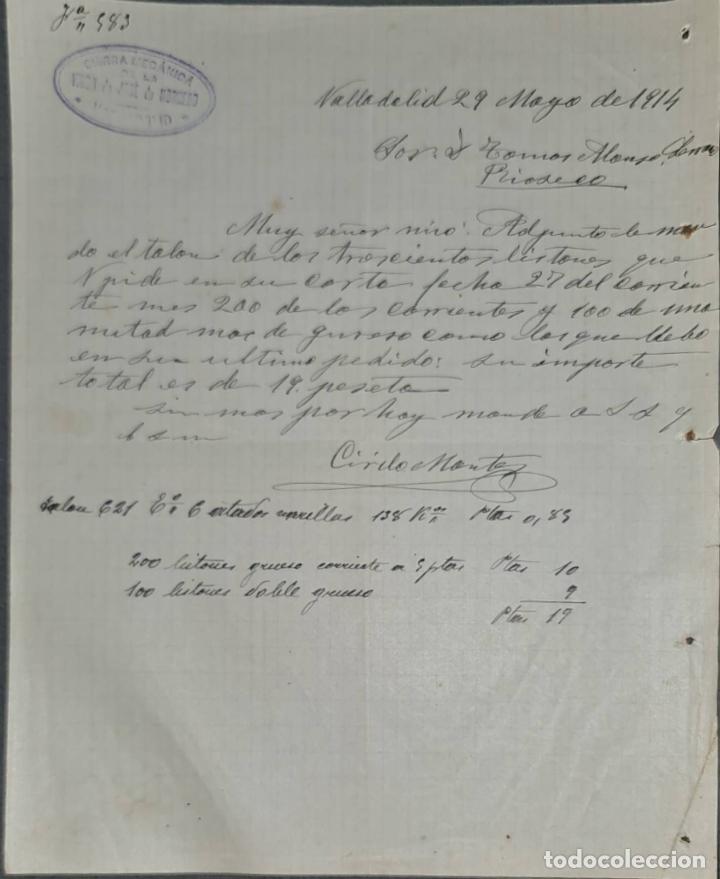 583
SIERRA MECÁNICA
DE LA
VIUDA de JOSÉ de
Valladolid 29 Mayo de 1914
Sor. D Tomas Alonso
Rioseco
Muy señor mio: Adjunto le man
do el talon de los trescientos listones que
V pide en su carta fecha 27 del corrien
te mes 200 de los corrientes y 100 de una
mitad mas de grueso como los que llebo
en su ultimo pedido: su importe
total es de 19. peseta
sin mas por hoy mande a S S y
b s m
Cirilo Montes
talon 621 6 atados 138 Ptas 0,83
200 listones grueso corriente a 5 ptas Ptas 10
100 listones doble grueso 9
Ptas 19
todocoleccion